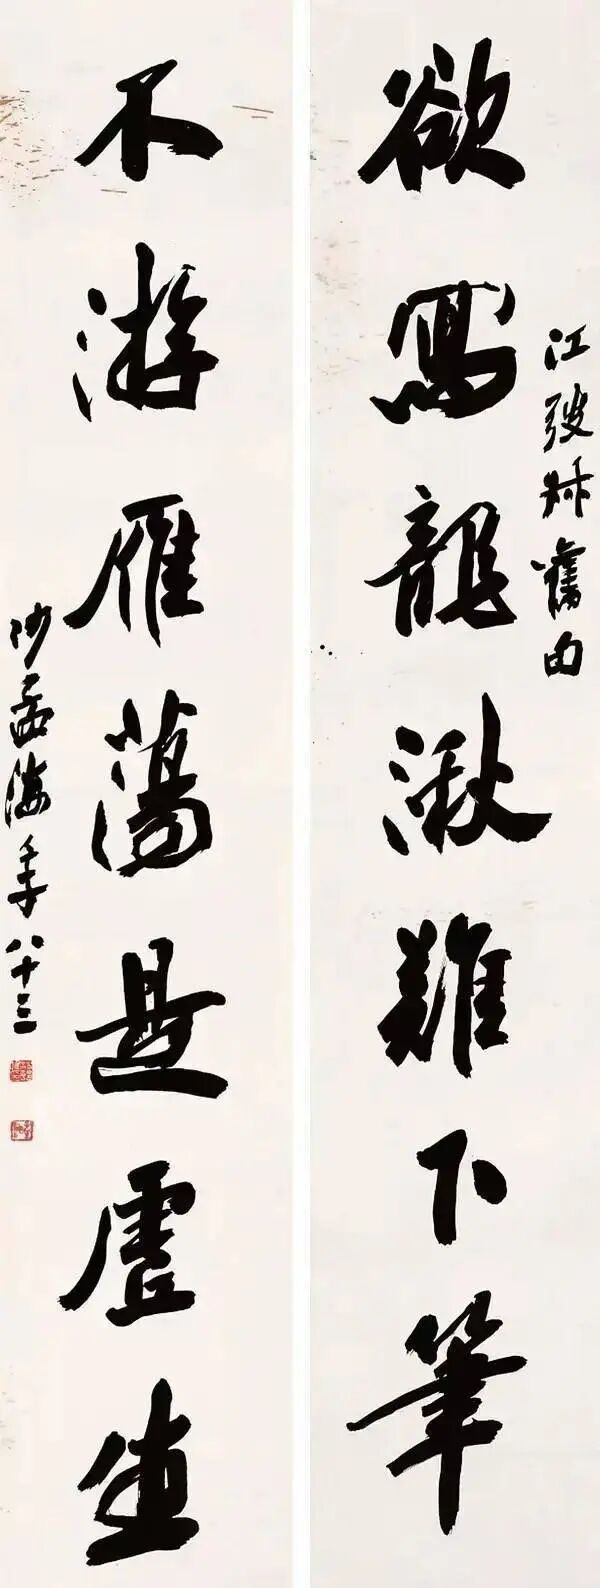 江弢叔舊句
欲寫龍湫難下筆
不游雁蕩是虛生
沙孟海年八十三